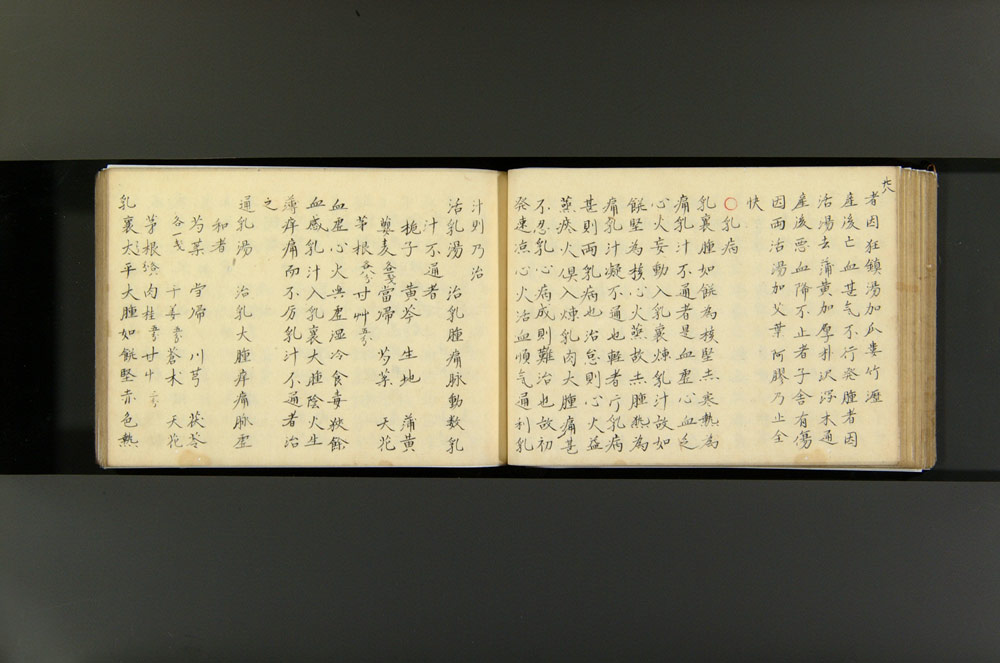 者因狂鎮湯加瓜蔞竹瀝
産後亡血甚气不行発腫者因
治湯去蒲黄加厚朴沢浮木通
産後悪血降不止者子舎有傷
因両治湯加艾葉阿膠乃止全
快
○乳病
乳裏腫如餅為核堅赤寒熱為
痛乳汁不通者是血虚心血乏
心火妄動入乳裏煉乳汁故如
餅堅為核心火蒸故赤腫熱為
痛乳汁凝不通也軽者片乳病
甚則両乳病也治怠則心火益
蒸疼火倶入煉乳肉大腫痛甚
不忍乳心病成則難治也故初
発速凉心火活血順气通利乳
汁則乃治
活乳湯 治乳腫痛脉動数乳
汁不通者
梔子 黄芩 生地 蒲黄
瞿麦 當帰 芍薬 天花
茅根 甘艸
血虚心火与虚湿冷食毒狹餘
血感乳汁入乳裏大腫陰火生
薄痒痛而不厉乳汁不通者治
之
通乳湯 治乳大腫痒痛脉虚
和者
芍薬 当帰 川芎 茯苓
各一戔 干姜 蒼木 天花
茅根 肉桂 甘艸
乳裏大平大腫如餅堅赤色熱